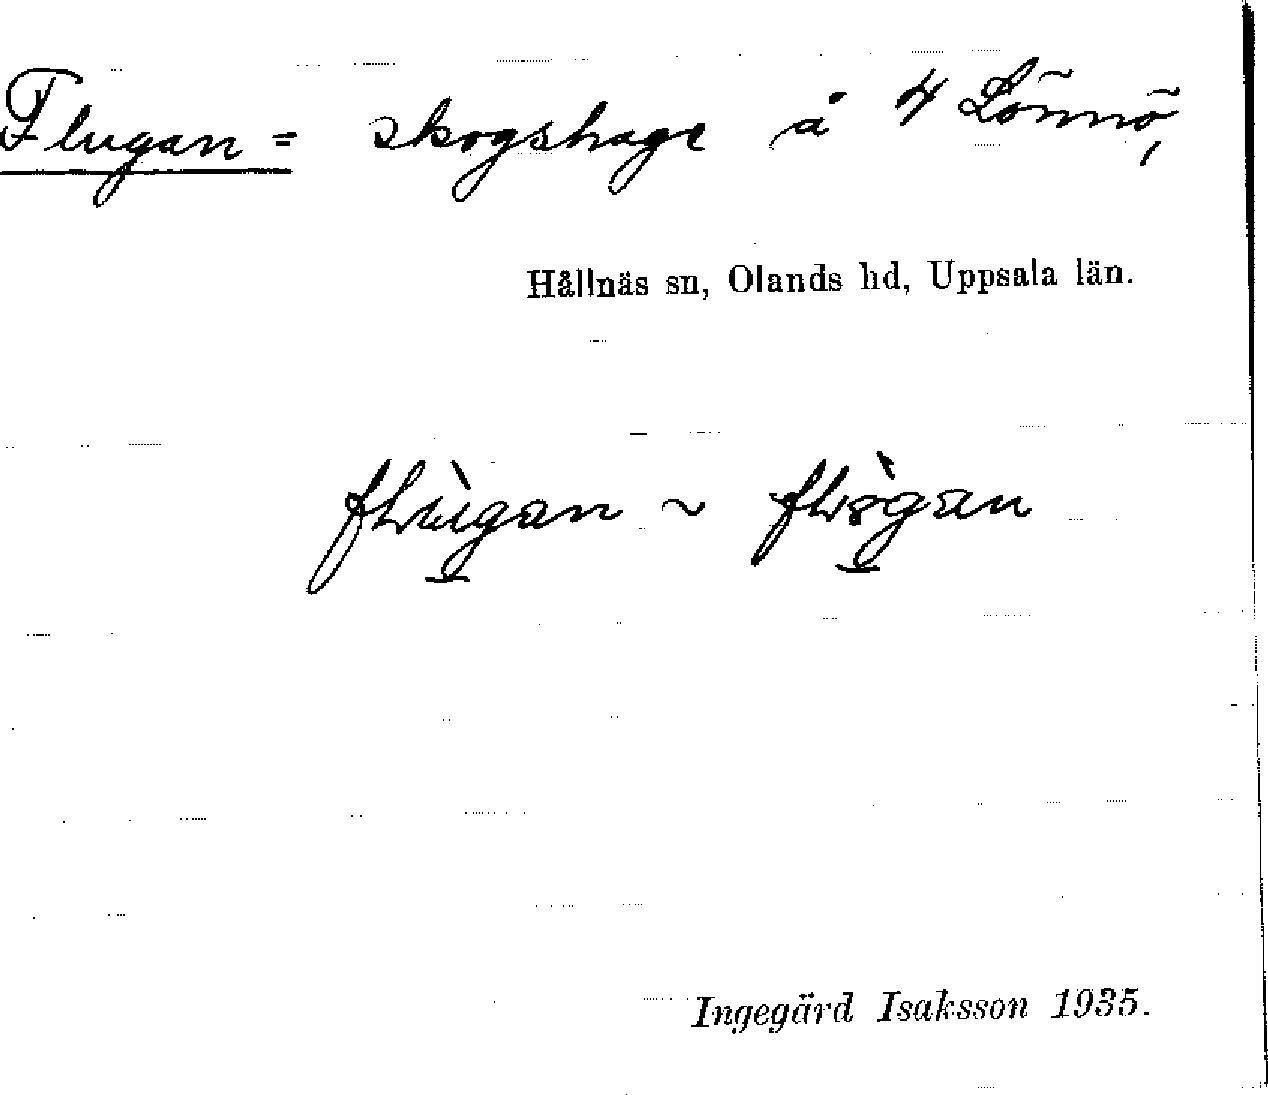 Flugan = skogshage å 4 Lönnö,
Hållnäs sn, Olands hd, Uppsala län.
flùgan ~
Ingegärd Isaksson 1935.